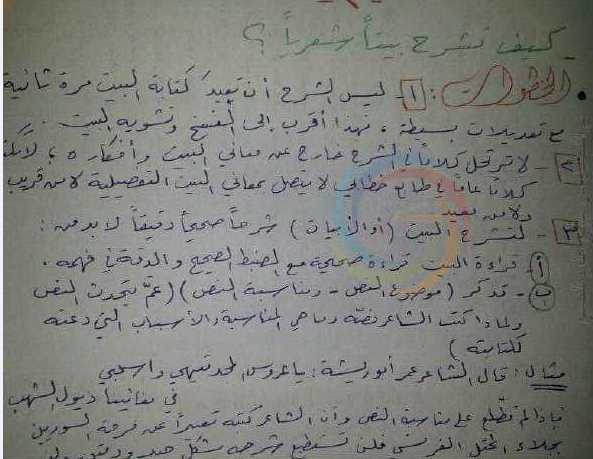 كيف تشرح بيتاً شعرياً ؟
الخطوات : 1 ليس الشرح أن تعيد كتابة البيت مرة ثانية
مع تعديلات بسيطة ، فهذا أقرب إلى المسخ وتشويه البيت .
2 - لا ترتجل كلاماً في الشرح خارج عن معاني البيت وأفكاره ؛ لا تكتب
كلاماً عاماً في طابع خطابي لا يتصل بمعاني البيت التفصيلية لا من قريب
ولا من بعيد
3 - لتشرح البيت ( أو الأبيات ) شرحاً صحيحاً دقيقاً لا بد من :
أ - قراءة البيت قراءة صحيحة مع الضبط الصحيح والدقة في فهمه .
ب - تذكر ( موضوع النص - ومناسبة النص ) ( عمَّ يتحدث النص
ولماذا كتب الشاعر نصّه وما هي المناسبة والأسباب التي دعته
لكتابته )
مثال : قال الشاعر عمر أبو ريشة : يا عروس المجد تيهي واسحبي
في مغانينا ذيول الشهب
فإذا لم تطّلع على مناسبة النص وأن الشاعر كتبه تعبيراً عن فرحة السوريين
بجلاء المحتل الفرنسي فلن تستطيع شرحه بشكل جيد ودقيق